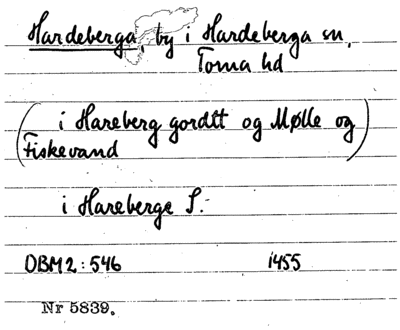 Hardeberga, by i Hardeberga sn,
Torna hd
(i Hareberg gordtt og Mølle og
Fiskevand)
i Hareberge S.
DBM2:546 1455
Nr 5839.